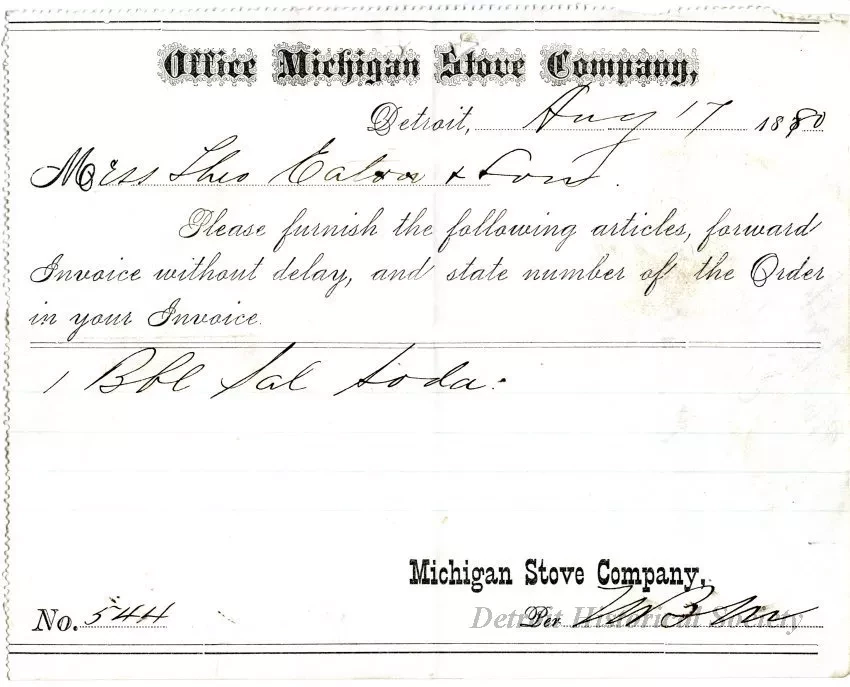 Office Michigan Stove Company,
Detroit, Aug 17 1880
Mess Theo Eaton & Son.
Please furnish the following articles, forward
Invoice without delay, and state number of the Order
in your Invoice.
1 Bbl Sal Soda.
Michigan Stove Company,
No. 544 Per
Detroit Historical Society